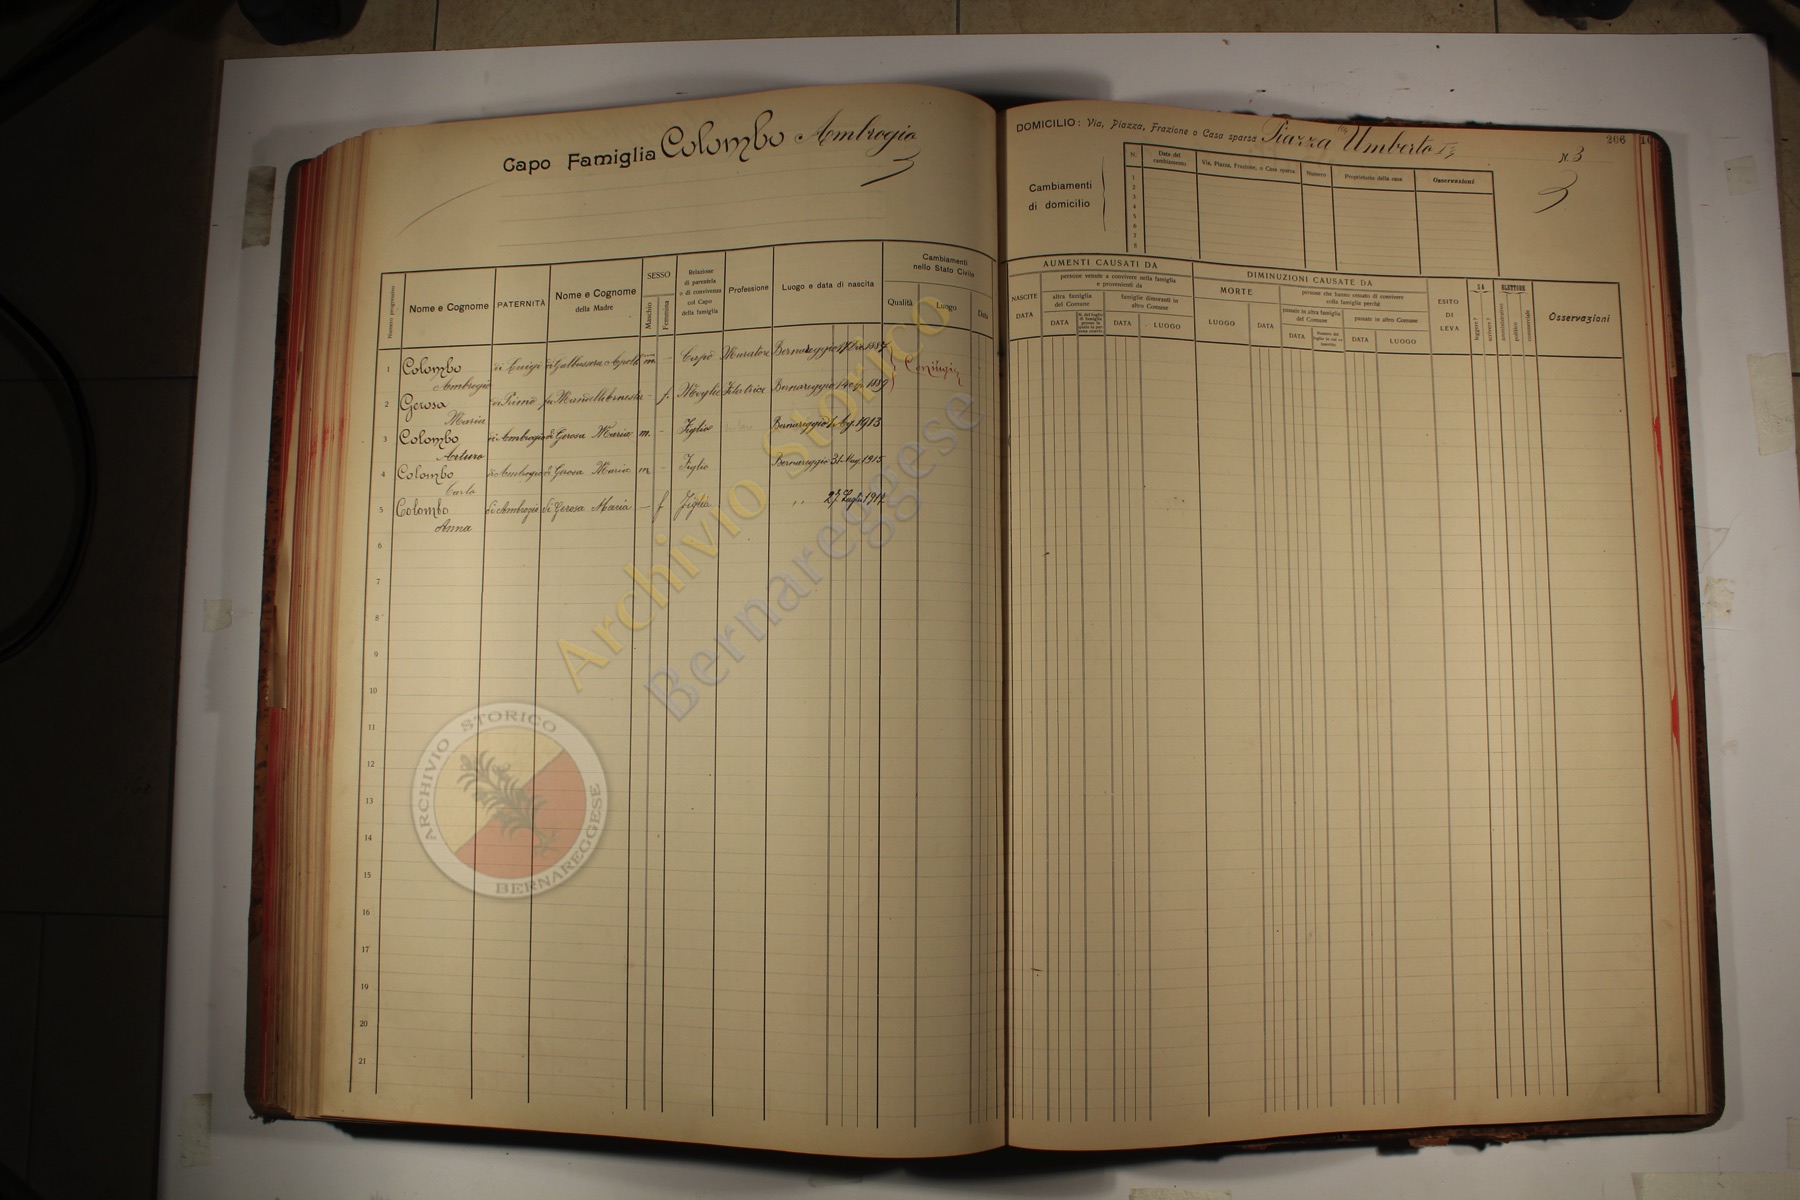 Capo Famiglia Colombo Ambrogio
Numero progressivo
Nome e Cognome
PATERNITÀ
Nome e Cognome
della Madre
SESSO
Maschio
Femmina
Relazione
di parentela
o di convivenza
col Capo
della famiglia
Professione
Luogo e data di nascita
Cambiamenti
nello Stato Civile
Qualità
Luogo
Data
1 Colombo Ambrogio di Luigi di m. - Capo Muratore Bernareggio 1887 Coniugi
2 Gerosa Maria di Primo fu - f. Moglie Filatrice Bernareggio 1889
3 Colombo Arturo di Ambrogio di Gerosa Maria m. - Figlio Bernareggio 1913
4 Colombo Carlo di Ambrogio di Gerosa Maria m - Figlio Bernareggio 31 Mag. 1915
5 Colombo Anna di Ambrogio di Gerosa Maria - f Figlia ,, 27 Luglio 1917
6
7
8
9
10
11
12
13
14
15
16
17
18
19
20
21
DOMICILIO: Via, Piazza, Frazione o Casa sparsa Piazza Umberto I
N. 3
206
Cambiamenti
di domicilio
N.
Data del
cambiamento
Via, Piazza, Frazione, o Casa sparsa
Numero
Proprietario della casa
Osservazioni
1
2
3
4
5
6
7
8
AUMENTI CAUSATI DA
NASCITE
DATA
persone venute a convivere nella famiglia
e provenienti da
altra famiglia
del Comune
DATA
famiglie dimoranti in
altro Comune
DATA
LUOGO
DIMINUZIONI CAUSATE DA
MORTE
LUOGO
DATA
persone che hanno cessato di convivere
colla famiglia perchè
passate in altra famiglia
del Comune
DATA
passate in altro Comune
DATA
LUOGO
ESITO
DI
LEVA
SA
leggere?
scrivere?
ELETTORE
amministrativo
politico
commerciale
Osservazioni
Archivio Storico
Bernareggese
ARCHIVIO STORICO
BERNAREGGESE